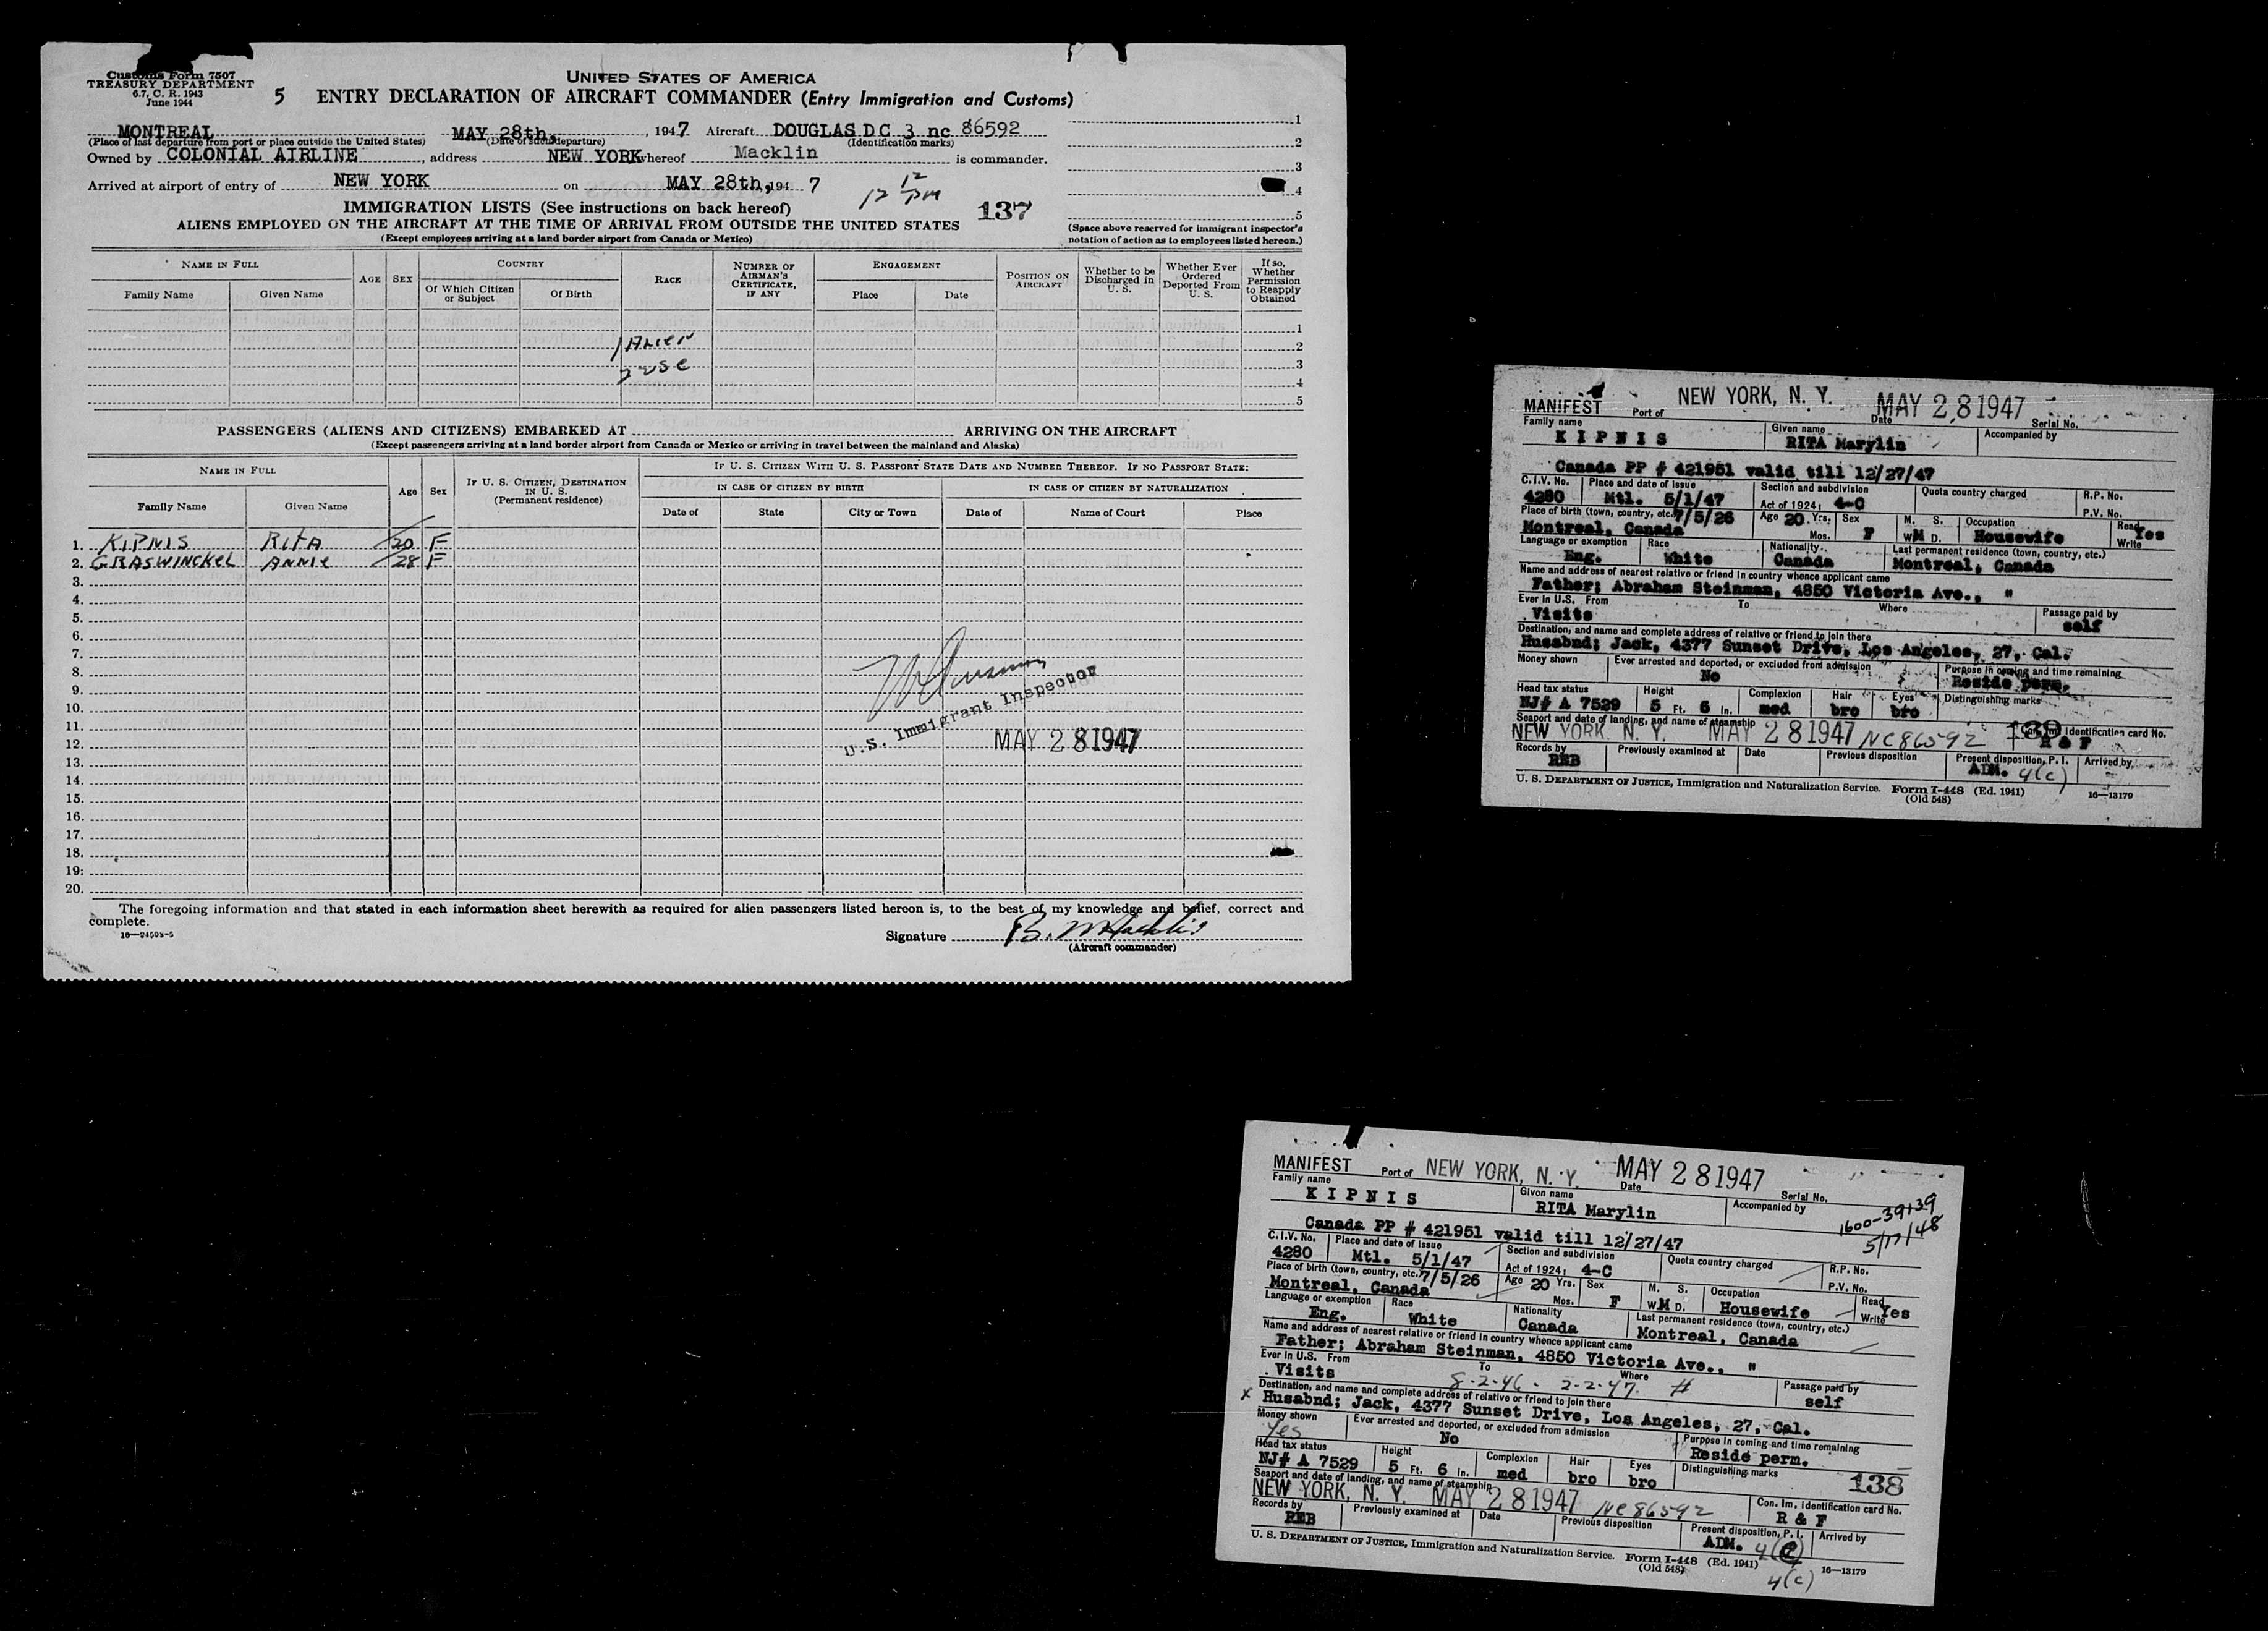 Customs Form 7507
TREASURY DEPARTMENT
6.7, C. R. 1943
June 1944
UNITED STATES OF AMERICA
5 ENTRY DECLARATION OF AIRCRAFT COMMANDER (Entry Immigration and Customs)
MONTREAL MAY 28th, , 1947 Aircraft DOUGLAS D C 3 nc 86592
(Place of last departure from port or place outside the United States) (Date of such departure) (Identification marks)
Owned by COLONIAL AIRLINE , address NEW YORK whereof Macklin is commander.
Arrived at airport of entry of NEW YORK on MAY 28th, 194 7
12 12 PM
137
1
2
3
4
5
(Space above reserved for immigrant inspector's
notation of action as to employees listed hereon.)
IMMIGRATION LISTS (See instructions on back hereof)
ALIENS EMPLOYED ON THE AIRCRAFT AT THE TIME OF ARRIVAL FROM OUTSIDE THE UNITED STATES
(Except employees arriving at a land border airport from Canada or Mexico)
NAME IN FULL AGE SEX COUNTRY RACE NUMBER OF AIRMAN'S CERTIFICATE, IF ANY ENGAGEMENT POSITION ON AIRCRAFT Whether to be Discharged in U. S. Whether Ever Ordered Deported From U. S. If so, Whether Permission to Reapply Obtained
Family Name Given Name Of Which Citizen or Subject Of Birth Place Date
1
1 ALIEN 2
2 USC 3
4
5
PASSENGERS (ALIENS AND CITIZENS) EMBARKED AT ARRIVING ON THE AIRCRAFT
(Except passengers arriving at a land border airport from Canada or Mexico or arriving in travel between the mainland and Alaska)
NAME IN FULL Age Sex IF U. S. CITIZEN, DESTINATION IN U. S. (Permanent residence) IF U. S. CITIZEN WITH U. S. PASSPORT STATE DATE AND NUMBER THEREOF. IF NO PASSPORT STATE:
IN CASE OF CITIZEN BY BIRTH IN CASE OF CITIZEN BY NATURALIZATION
Family Name Given Name Date of State City or Town Date of Name of Court Place
1. KIPNIS RITA 20 F
2. GRASWINCKEL ANNIE 28 F
3.
4.
5.
6.
7.
8.
9.
10.
11.
12.
13.
14.
15.
16.
17.
18.
19.
20.
U.S. Immigrant Inspector
MAY 28 1947
The foregoing information and that stated in each information sheet herewith as required for alien passengers listed hereon is, to the best of my knowledge and belief, correct and
complete.
16—24593-5
Signature B. Macklin
(Aircraft commander)
MANIFEST Port of NEW YORK, N. Y. Date MAY 28 1947 Serial No.
Family name Given name Accompanied by
KIPNIS RITA Marylin
Canada PP # 421951 valid till 12/27/47
C.I.V. No. Place and date of issue Section and subdivision Quota country charged R.P. No.
4280 Mtl. 5/1/47 Act of 1924; 4-C P.V. No.
Place of birth (town, country, etc.) 7/5/26 Age 20 Yrs. Mos. Sex M. S. Occupation Read Yes
Montreal, Canada F W M D. Housewife Write
Language or exemption Race Nationality Last permanent residence (town, country, etc.)
Eng. White Canada Montreal, Canada
Name and address of nearest relative or friend in country whence applicant came
Father; Abraham Steinman, 4850 Victoria Ave., "
Ever in U.S. From To Where Passage paid by
Visits self
Destination, and name and complete address of relative or friend to join there
Husabnd; Jack, 4377 Sunset Drive, Los Angeles, 27, Cal.
Money shown Ever arrested and deported, or excluded from admission Purpose in coming and time remaining
No Reside perm.
Head tax status Height Complexion Hair Eyes Distinguishing marks
NJ# A 7529 5 Ft. 6 In. med bro bro
Seaport and date of landing, and name of steamship Identification card No.
NEW YORK, N. Y. MAY 28 1947 NC86592 139 R & F
Records by Previously examined at Date Previous disposition Present disposition, P. I. Arrived by
REB ADM. 4(c)
U. S. DEPARTMENT OF JUSTICE, Immigration and Naturalization Service. Form I-448 (Ed. 1941) 16—13179
(Old 548)
MANIFEST Port of NEW YORK, N. Y. Date MAY 28 1947 Serial No.
Family name Given name Accompanied by
KIPNIS RITA Marylin
1600-39139
5/17/48
Canada PP # 421951 valid till 12/27/47
C.I.V. No. Place and date of issue Section and subdivision Quota country charged R.P. No.
4280 Mtl. 5/1/47 Act of 1924; 4-C P.V. No.
Place of birth (town, country, etc.) 7/5/26 Age 20 Yrs. Mos. Sex M. S. Occupation Read Yes
Montreal, Canada F W M D. Housewife Write
Language or exemption Race Nationality Last permanent residence (town, country, etc.)
Eng. White Canada Montreal, Canada
Name and address of nearest relative or friend in country whence applicant came
Father; Abraham Steinman, 4850 Victoria Ave., "
Ever in U.S. From To Where Passage paid by
Visits 8-2-46 - 2-2-47. # self
Destination, and name and complete address of relative or friend to join there
x Husabnd; Jack, 4377 Sunset Drive, Los Angeles, 27, Cal.
Money shown Ever arrested and deported, or excluded from admission Purpose in coming and time remaining
Yes No Reside perm.
Head tax status Height Complexion Hair Eyes Distinguishing marks
NJ# A 7529 5 Ft. 6 In. med bro bro 138
Seaport and date of landing, and name of steamship Con. Im. Identification card No.
NEW YORK, N. Y. MAY 28 1947 NC86592 R & F
Records by Previously examined at Date Previous disposition Present disposition, P. I. Arrived by
REB ADM. 4(C)
U. S. DEPARTMENT OF JUSTICE, Immigration and Naturalization Service. Form I-448 (Ed. 1941) 16—13179
(Old 548) 4(c)